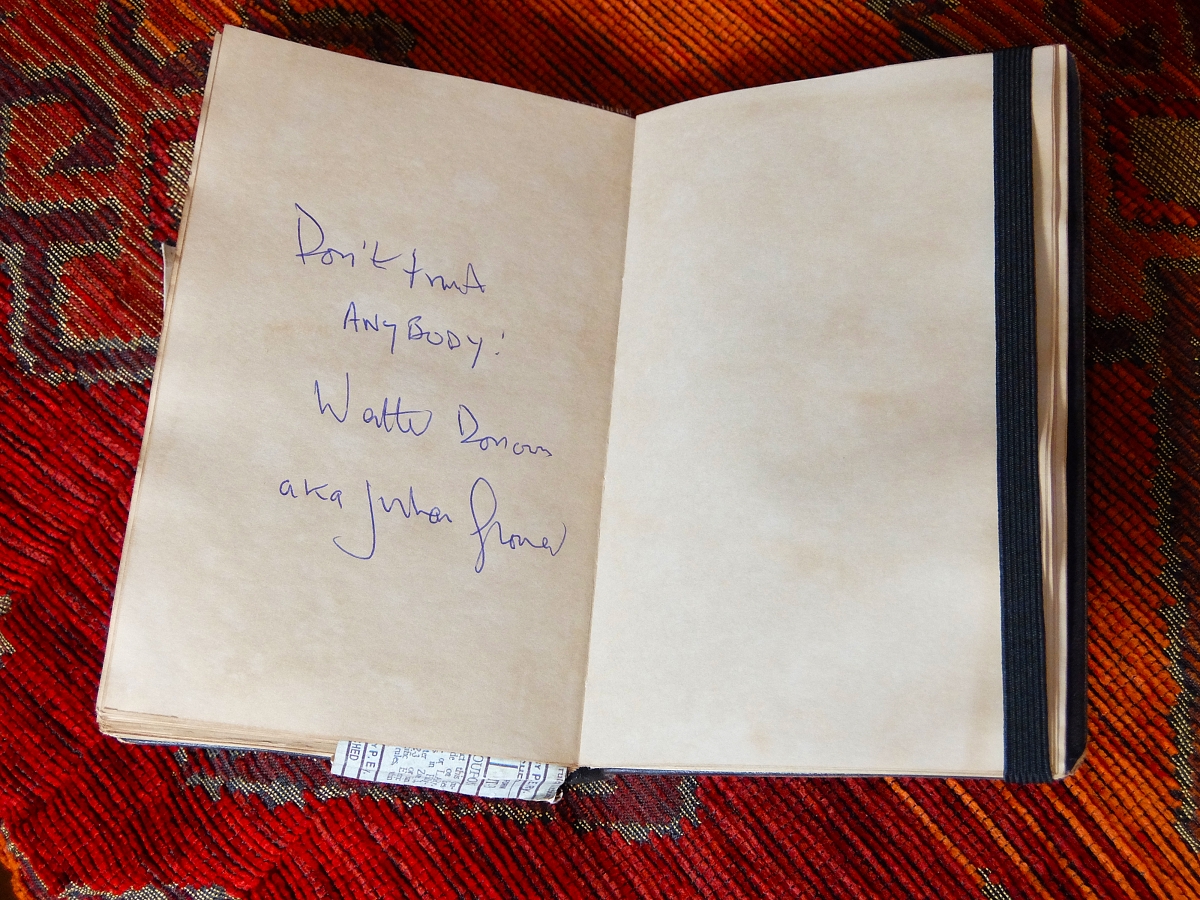 Don't trust
ANYBODY!
Walter Donovan
aka Julian Glover